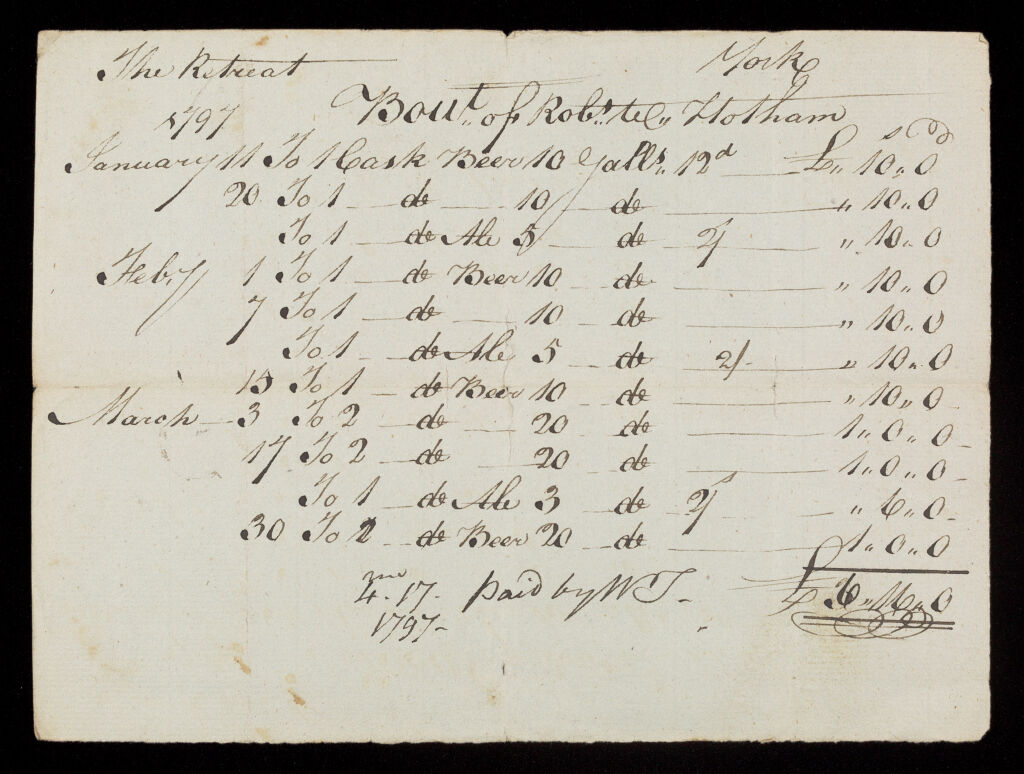 The Retreat York
1797 Bout. of Robt. & Co. Hotham
£ s d
January 11 To 1 Cask Beer 10 Galls. 12d £ " 10 " 0
20 To 1 do 10 do " 10 " 0
To 1 do Ale 5 do 2/ " 10 " 0
Feby 1 To 1 do Beer 10 do " 10 " 0
7 To 1 do 10 do " 10 " 0
To 1 do Ale 5 do 2/- " 10 " 0
15 To 1 do Beer 10 do " 10 " 0
March 3 To 2 do 20 do 1 " 0 " 0
17 To 2 do 20 do 1 " 0 " 0
To 1 do Ale 3 do 2/ " 6 " 0
30 To 2 do Beer 20 do 1 " 0 " 0
£ 6 " 16 " 0
4 mo 17 - paid by WT -
1797 -